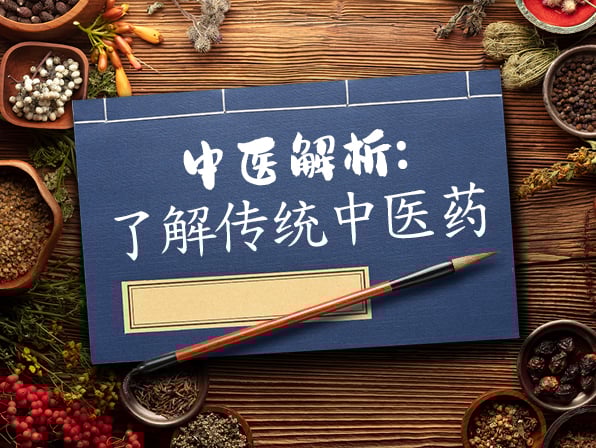 中医解析:
了解传统中医药